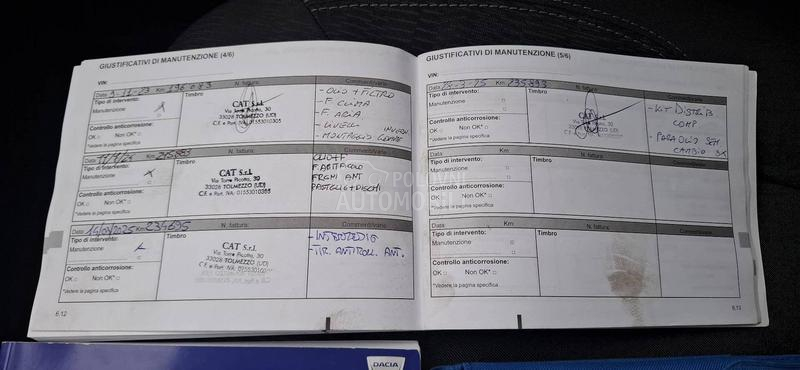 GIUSTIFICATIVI DI MANUTENZIONE (4/6)
VIN:
Data: 9-11-23 Km: 196083 N. fattura: Commenti/varie
Tipo di intervento: Timbro
Manutenzione
CAT S.r.l.
Via Torre Picotta, 30
33028 TOLMEZZO (UD)
C.F. e Part. IVA: 01553010305
- OLIO + FILTRO
- F. CLIMA
- F. ARIA
- LIVELLI
- MONTAGGIO GOMME INVERN.
Controllo anticorrosione:
OK □ Non OK* □
*Vedere la pagina specifica
Data: Km: N. fattura: Commenti/varie
Tipo di intervento: Timbro
Manutenzione
CAT S.r.l.
Via Torre Picotta, 30
33028 TOLMEZZO (UD)
C.F. e Part. IVA: 01553010305
F. ANTIPOLLO
FRENI ANT
PASTIGLIE + DISCHI
Controllo anticorrosione:
OK □ Non OK* □
*Vedere la pagina specifica
Data: Km: 234695 N. fattura: Commenti/varie
Tipo di intervento: Timbro
Manutenzione
CAT S.r.l.
Via Torre Picotta, 30
33028 TOLMEZZO (UD)
C.F. e Part. IVA: 0155301030
- TIR. ANTIROLL. ANT.
Controllo anticorrosione:
OK □ Non OK* □
*Vedere la pagina specifica
6.12
GIUSTIFICATIVI DI MANUTENZIONE (5/6)
VIN:
Data: Km: 235893 N. fattura: Commenti/varie
Tipo di intervento: Timbro
Manutenzione
- KIT DISTRIB
COMP
- PARAOLIO SEM
CAMBIO SX
Controllo anticorrosione:
OK □ Non OK* □
*Vedere la pagina specifica
Data: Km: N. fattura: Commenti/varie
Tipo di intervento: Timbro
Manutenzione □
Controllo anticorrosione:
OK □ Non OK* □
*Vedere la pagina specifica
Data: Km: N. fattura: Commenti/varie
Tipo di intervento: Timbro
Manutenzione □
Controllo anticorrosione:
OK □ Non OK* □
*Vedere la pagina specifica
6.13
POLOVNI
AUTOMOBILI
DACIA